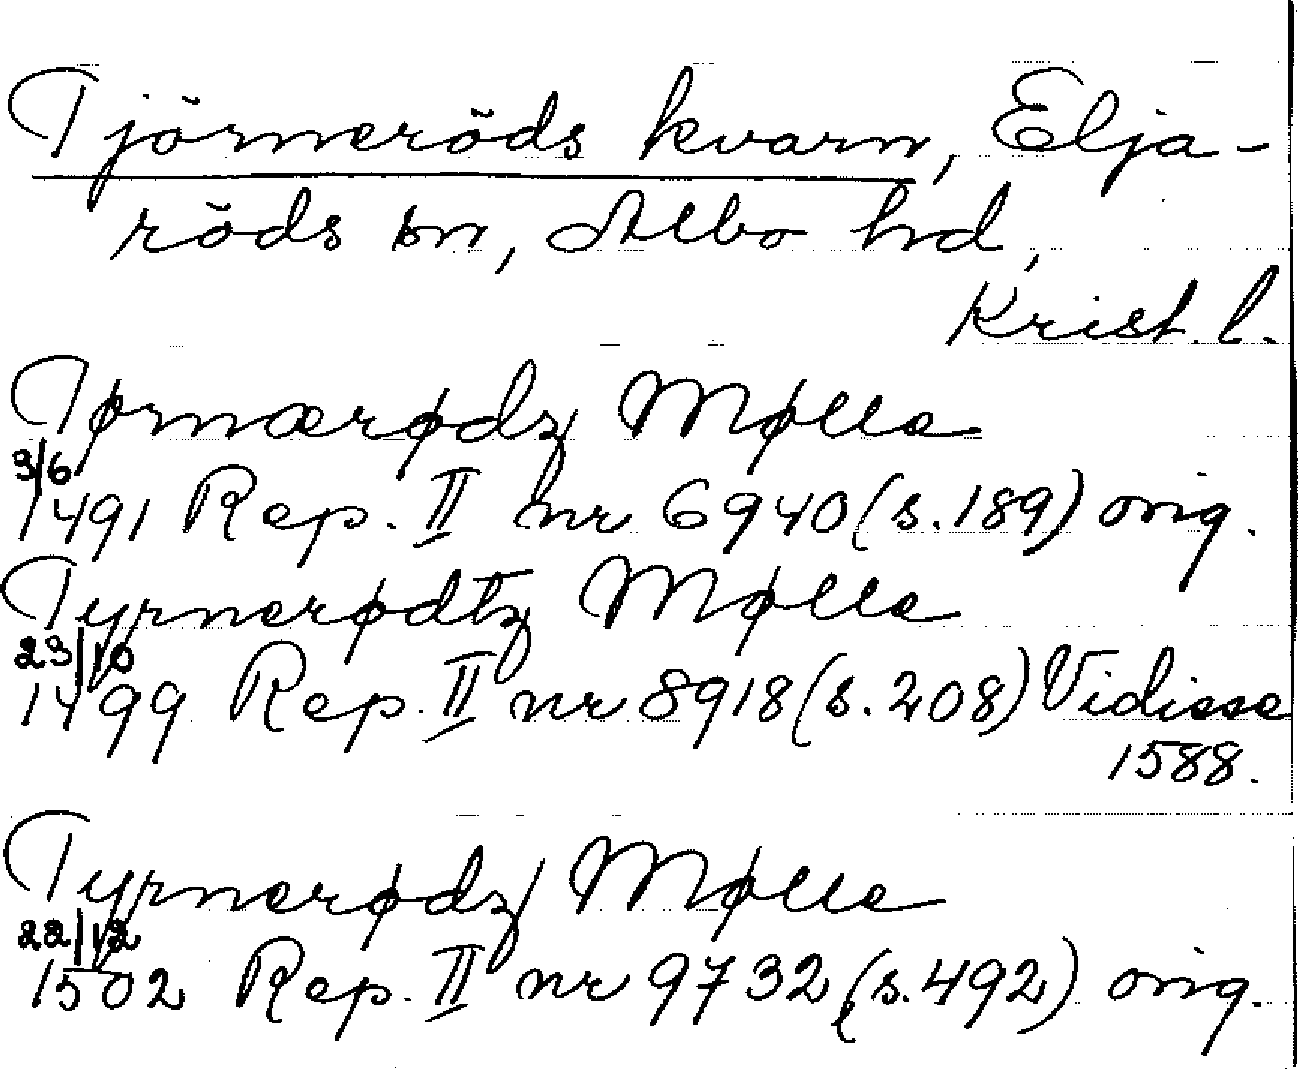 Tjörneröds kvarn, Elja-
röds sn, Albo hd,
Krist. l.
Tørnærødz Mølle
3/6
1491 Rep. II nr 6940 (s. 189) orig.
Tyrnerødtz Mølle
23/10
1499 Rep. II nr 8918 (s. 208) Vidisse
1588.
Tyrnerødz Mølle
22/12
1502 Rep. II nr 9732 (s. 492) orig.